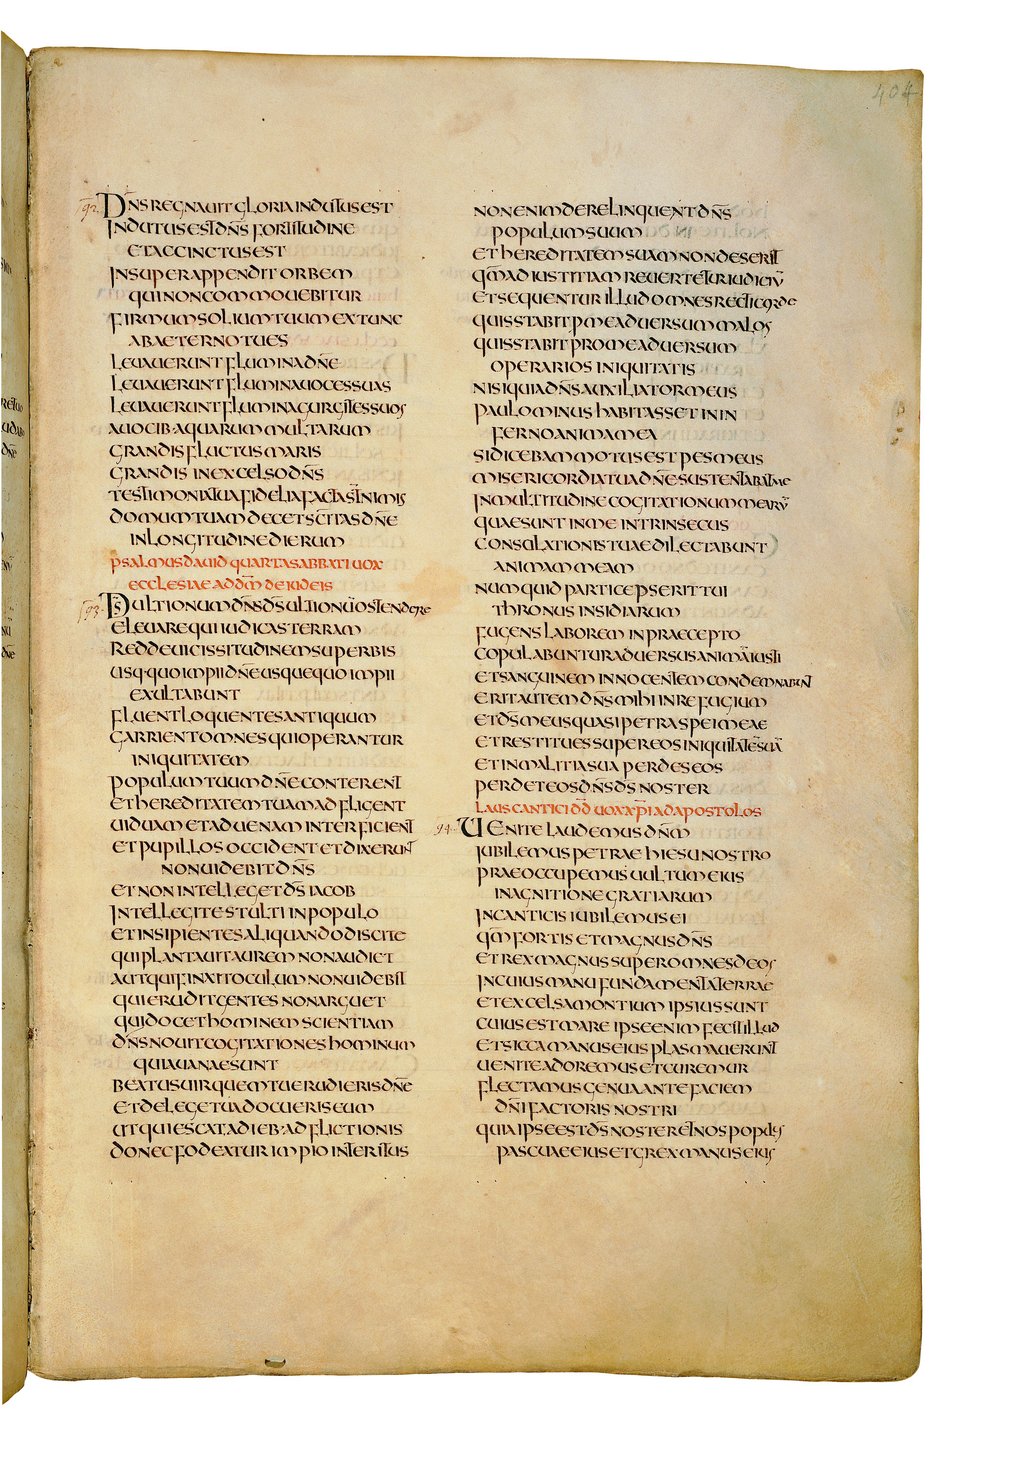 404
92 DN̄S REGNAUIT GLORIA INDUTUS EST
INDUTUS EST DN̄S FORTITUDINE
ET ACCINCTUS EST
INSUPER APPENDIT ORBEM
QUI NON COMMOUEBITUR
FIRMUM SOLIUM TUUM EX TUNC
AB AETERNO TU ES
LEUAUERUNT FLUMINA DN̄E
LEUAUERUNT FLUMINA UOCES SUAS
LEUAUERUNT FLUMINA GURGITES SUOS
A UOCIB· AQUARUM MULTARUM
GRANDIS FLUCTUS MARIS
GRANDIS IN EXCELSO DN̄S
TESTIMONIA TUA FIDELIA FACTA ST̄ NIMIS
DOMUM TUAM DECET SC̄ITAS DN̄E
IN LONGITUDINE DIERUM
PSALMUS DAUID QUARTA SABBATI UOX
ECCLESIAE AD DN̄M DE IUDEIS
93 PS̄ ULTIONUM DN̄S DS̄ ULTIONŪ OSTENDERE
ELEUARE QUI IUDICAS TERRAM
REDDE UICISSITUDINEM SUPERBIS
USQ·QUO IMPII DN̄E USQUEQUO IMPII
EXULTABUNT
FLUENT LOQUENTES ANTIQUUM
GARRIENT OMNES QUI OPERANTUR
INIQUITATEM
POPULUM TUUM DN̄E CONTERENT
ET HEREDITATEM TUAM ADFLIGENT
UIDUAM ET ADUENAM INTERFICIENT
ET PUPILLOS OCCIDENT ET DIXERUNT
NON UIDEBIT DN̄S
ET NON INTELLEGET DS̄ IACOB
INTELLEGITE STULTI IN POPULO
ET INSIPIENTES ALIQUANDO DISCITE
QUI PLANTAUIT AUREM NON AUDIET
AUT QUI FINXIT OCULUM NON UIDEBIT
QUI ERUDIT GENTES NON ARGUET
QUI DOCET HOMINEM SCIENTIAM
DN̄S NOUIT COGITATIONES HOMINUM
QUIA UANAE SUNT
BEATUS UIR QUEM TU ERUDIERIS DN̄E
ET DE LEGE TUA DOCUERIS EUM
UT QUIESCAT A DIEB· ADFLICTIONIS
DONEC FODEATUR IMPIO INTERITUS
NON ENIM DERELINQUENT DN̄S
POPULUM SUUM
ET HEREDITATEM SUAM NON DESERIT
QM̄ AD IUSTITIAM REUERTETUR IUDICIŪ
ET SEQUENTUR ILLUD OMNES RECTI CORDE
QUIS STABIT P̄ ME ADUERSUM MALOS
QUIS STABIT PRO ME ADUERSUM
OPERARIOS INIQUITATIS
NISI QUIA DN̄S AUXILIATOR MEUS
PAULO MINUS HABITASSET IN IN
FERNO ANIMA MEA
SI DICEBAM MOTUS EST PES MEUS
MISERICORDIA TUA DN̄E SUSTENTABAT ME
IN MULTITUDINE COGITATIONUM MEARŪ
QUAE SUNT IN ME INTRINSECUS
CONSOLATIONIS TUAE DILECTABUNT
ANIMAM MEAM
NUMQUID PARTICEPS ERIT TUI
THRONUS INSIDIARUM
FUGENS LABOREM IN PRAECEPTO
COPULABUNTUR ADUERSUS ANIMĀ IUSTI
ET SANGUINEM INNOCENTEM CONDEMNABUNT
ERIT AUTEM DN̄S MIHI IN REFUGIUM
ET DS̄ MEUS QUASI PETRA SPEI MEAE
ET RESTITUES SUPER EOS INIQUITATĒ SUĀ
ET IN MALITIA SUA PERDES EOS
PERDET EOS DN̄S DS̄ NOSTER
LAUS CANTICI DD̄ UOX XP̄I AD APOSTOLOS
94 UENITE LAUDEMUS DN̄M
IUBILEMUS PETRAE HIESU NOSTRO
PRAEOCCUPEMUS UULTUM EIUS
IN AGNITIONE GRATIARUM
IN CANTICIS IUBILEMUS EI
QM̄ FORTIS ET MAGNUS DN̄S
ET REX MAGNUS SUPER OMNES DEOS
IN CUIUS MANU FUNDAMENTA TERRAE
ET EXCELSA MONTIUM IPSIUS SUNT
CUIUS EST MARE IPSE ENIM FECIT ILLUD
ET SICCA MANUS EIUS PLASMAUERUNT
UENITE ADOREMUS ET CUREMUR
FLECTAMUS GENUA ANTE FACIEM
DN̄I FACTORIS NOSTRI
QUIA IPSE EST DS̄ NOSTER ET NOS POPULUS
PASCUAE EIUS ET GREX MANUS EIUS